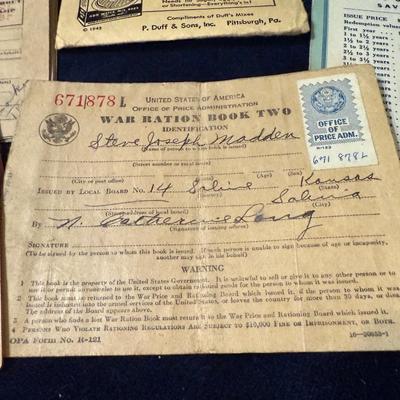 or Shortening—Everything's in!
© 1942
Compliments of Duff's Mixes
P. Duff & Sons, Inc. Pittsburgh, Pa.
ISSUE PRICE
Redemption value
First year
671878 L
UNITED STATES OF AMERICA
OFFICE OF PRICE ADMINISTRATION
WAR RATION BOOK TWO
IDENTIFICATION
OFFICE
OF
PRICE ADM.
671 878L
Steve Joseph Madden
(Street number or rural route)
(City or post office) (State) (Age) (Sex)
ISSUED BY LOCAL BOARD NO. 14 Saline Kansas
(County) (State)
Salina
(Street address of local board) (City)
By N. Catherine Long
(Signature of issuing officer)
SIGNATURE
(To be signed by the person to whom this book is issued. If such person is unable to sign because of age or incapacity, another may sign in his behalf)
WARNING
1 This book is the property of the United States Government. It is unlawful to sell or give it to any other person or to
use it or permit anyone else to use it, except to obtain rationed goods for the person to whom it was issued.
2 This book must be returned to the War Price and Rationing Board which issued it, if the person to whom it was
issued is inducted into the armed services of the United States, or leaves the country for more than 30 days, or dies.
The address of the Board appears above.
3 A person who finds a lost War Ration Book must return it to the War Price and Rationing Board which issued it.
4 PERSONS WHO VIOLATE RATIONING REGULATIONS ARE SUBJECT TO $10,000 FINE OR IMPRISONMENT, OR BOTH.
OPA Form No. R-121